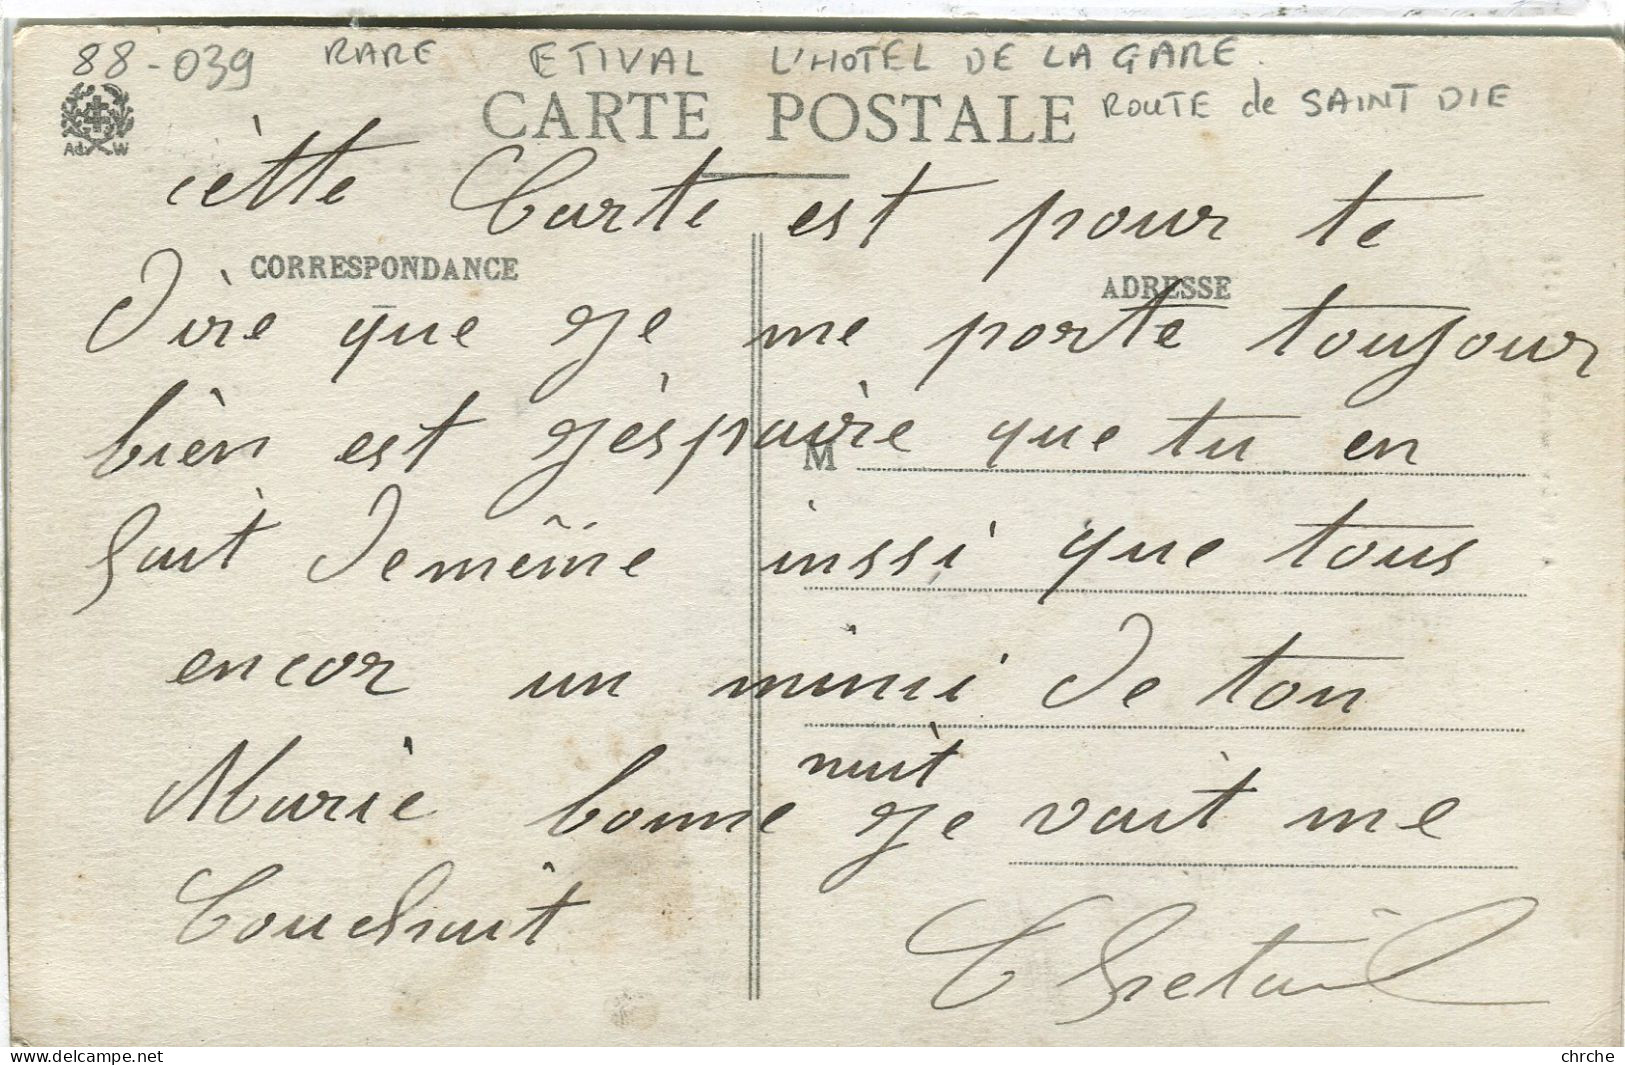 88-039 RARE ETIVAL L'HOTEL DE LA GARE
ROUTE de SAINT DIE
CARTE POSTALE
Ad W
cètte Carte est pour te
CORRESPONDANCE
ADRESSE
Dire que je me porte toujour
bièn est j'èspaire que tu en
M
Sait De même inssi que tous
encor un mimi De ton
nuit
Marie bonne je vait me
Couchait
delcampe.net
chrche